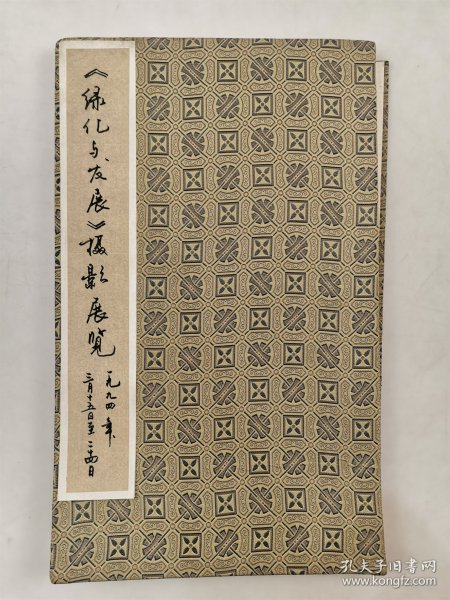 《绿化与发展》摄影展览
一九九四年
三月十五日至二十四日
孔夫子旧书网
www.kongfz.com